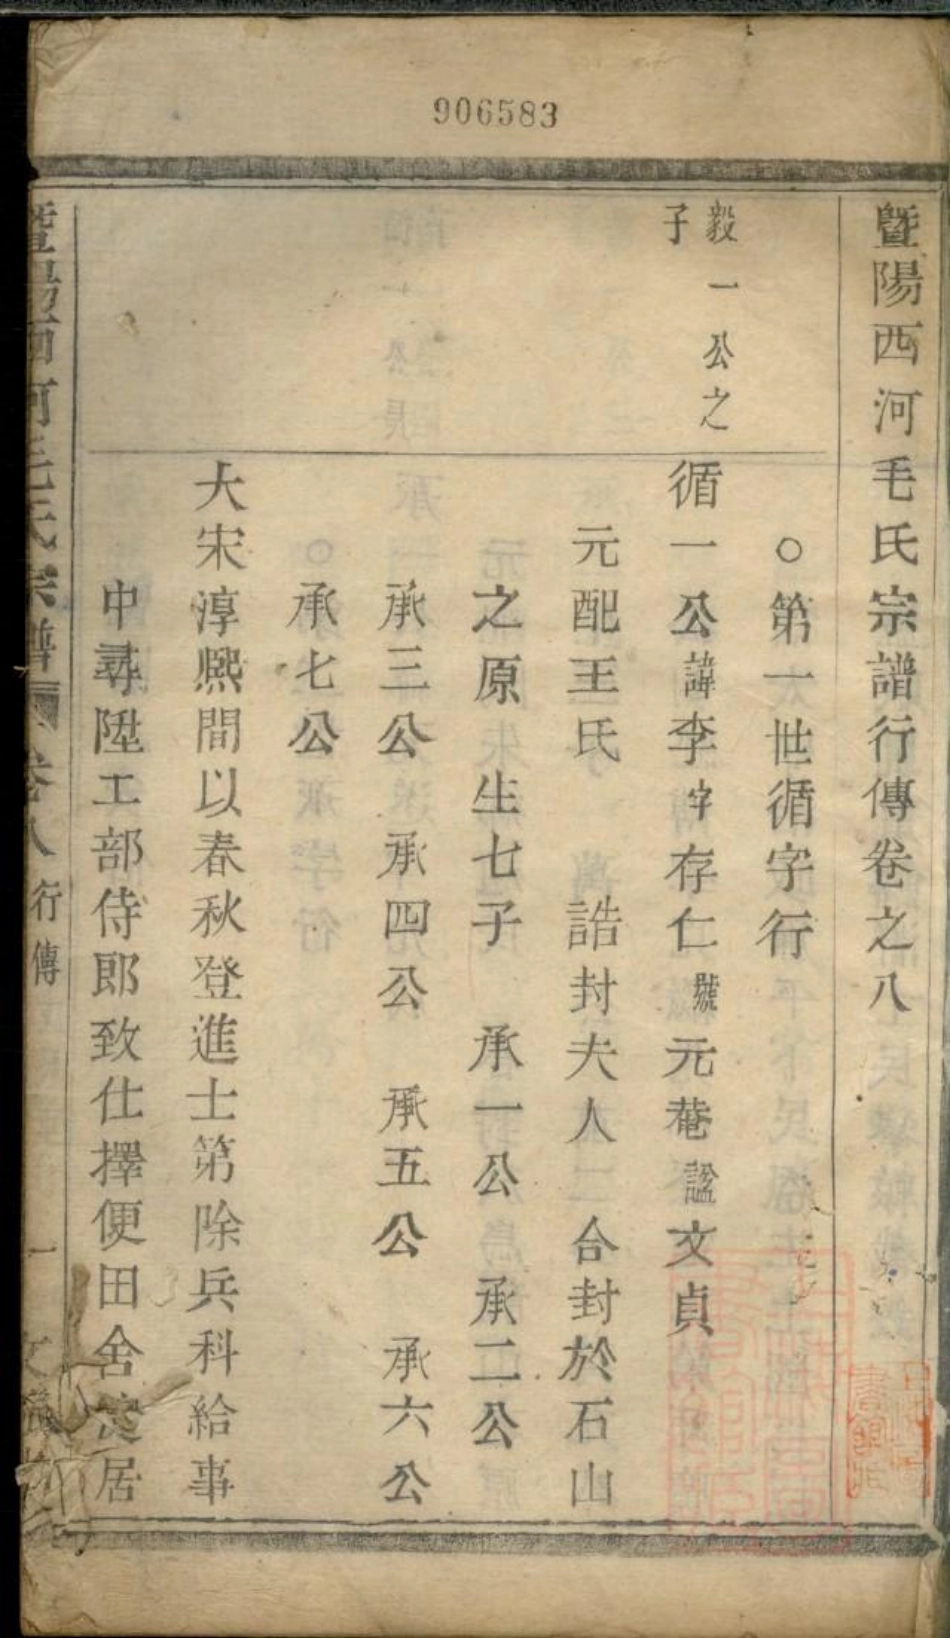 906583
暨陽西河毛氏宗譜行傳卷之八
○第一世循字行
毅一公之
子
循一公諱李字存仁號元菴諡文貞
元配王氏 誥封夫人 合封於石山
之原 生七子 承一公 承二公
承三公 承四公 承五公 承六公
承七公
大宋淳熙間以春秋登進士第除兵科給事
中尋陞工部侍郎致仕擇便田舍定居
暨陽西河毛氏宗譜 卷八 行傳 一